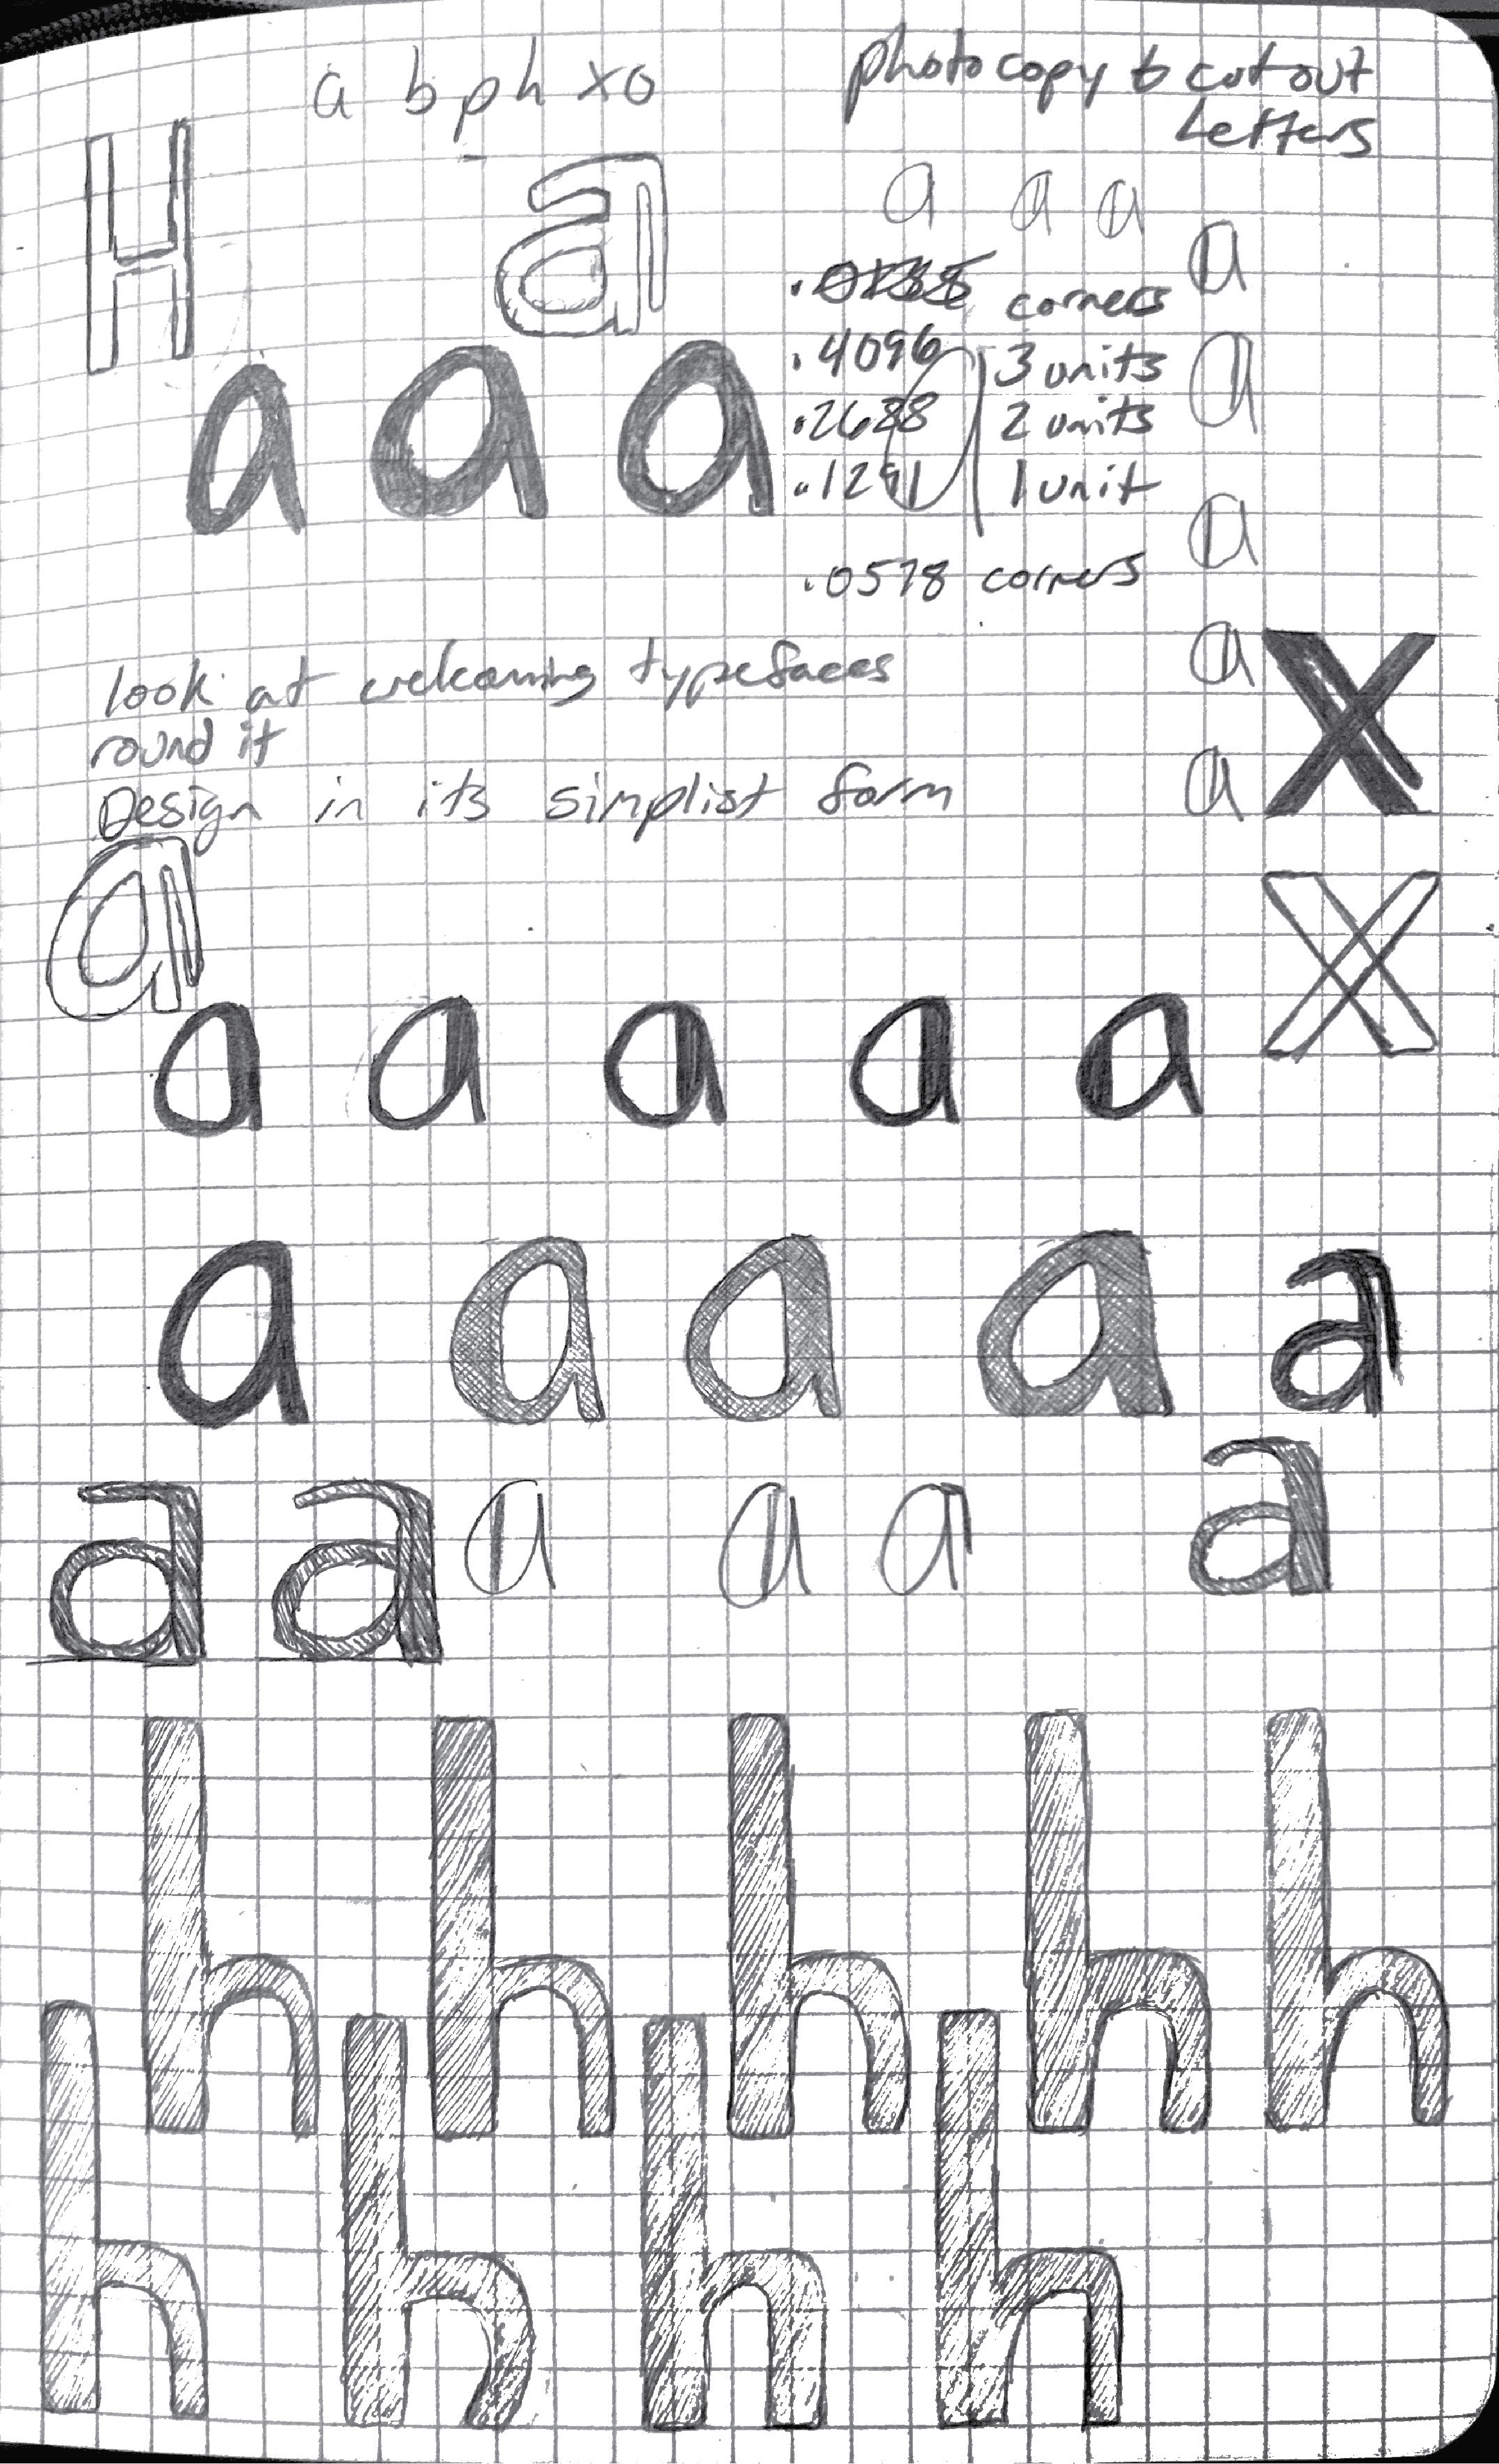 a b p h x o
photocopy & cut out
Letters
H
a
a a a
a
corners
.4096 3 units
a
.2688 2 units
.1291 1 unit
a a a
a
.0578 corners
look at welcoming typefaces
a X
round it
Design in its simplist form
a
a
X
a a a a a
a a a a a
a a a a a a
h h h h h
h h h h